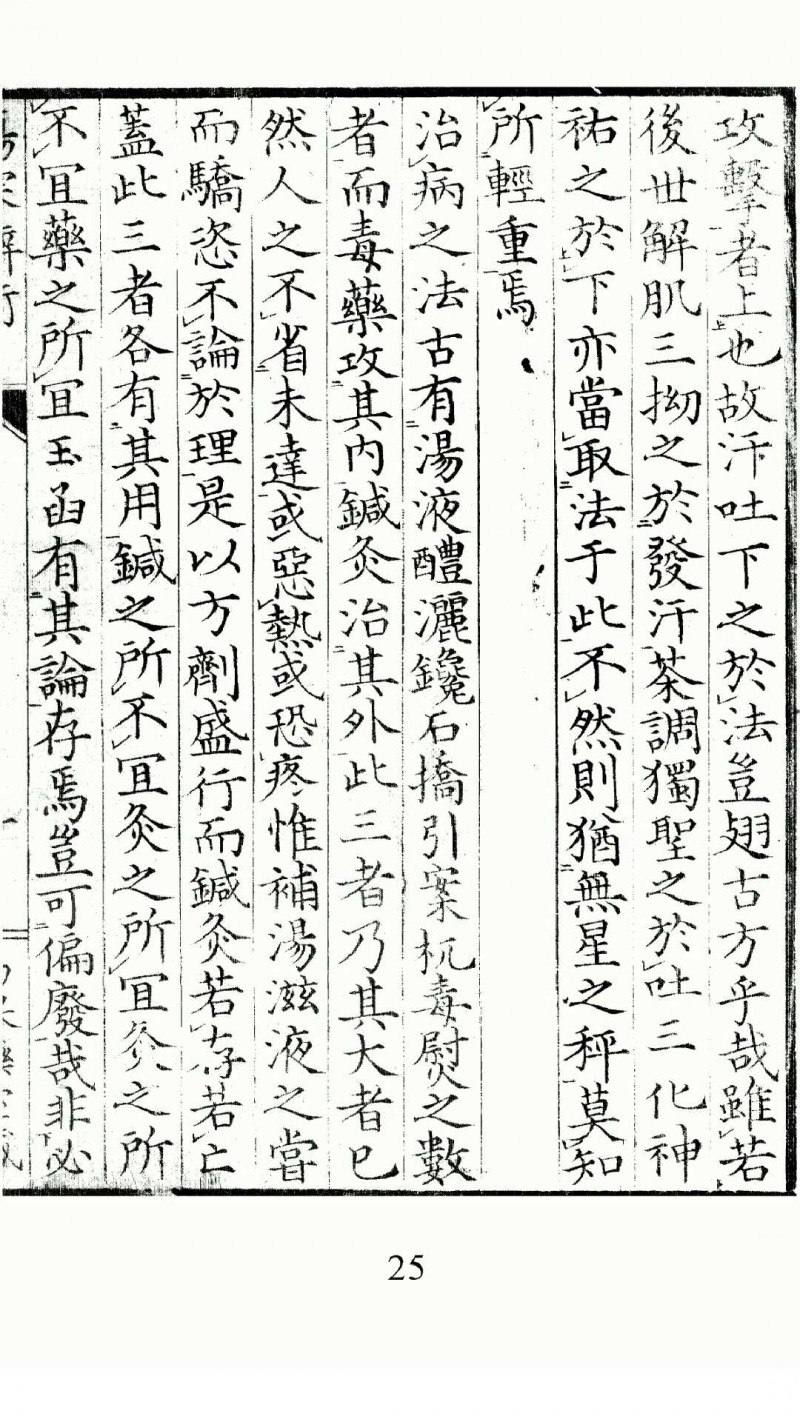 攻擊者上也故汗吐下之於法豈翅古方乎哉雖若
後世解肌三拗之於發汗茶調獨聖之於吐三化神
祐之於下亦當取法于此不然則猶無星之秤莫知
所輕重焉
治病之法古有湯液醴灑鑱石撟引案杌毒熨之數
者而毒藥攻其內鍼灸治其外此三者乃其大者已
然人之不省未達或惡熱或恐疼惟補湯滋液之嘗
而驕恣不論於理是以方劑盛行而鍼灸若存若亡
蓋此三者各有其用鍼之所不宜灸之所宜灸之所
不宜藥之所宜玉函有其論存焉豈可偏廢哉非必
25